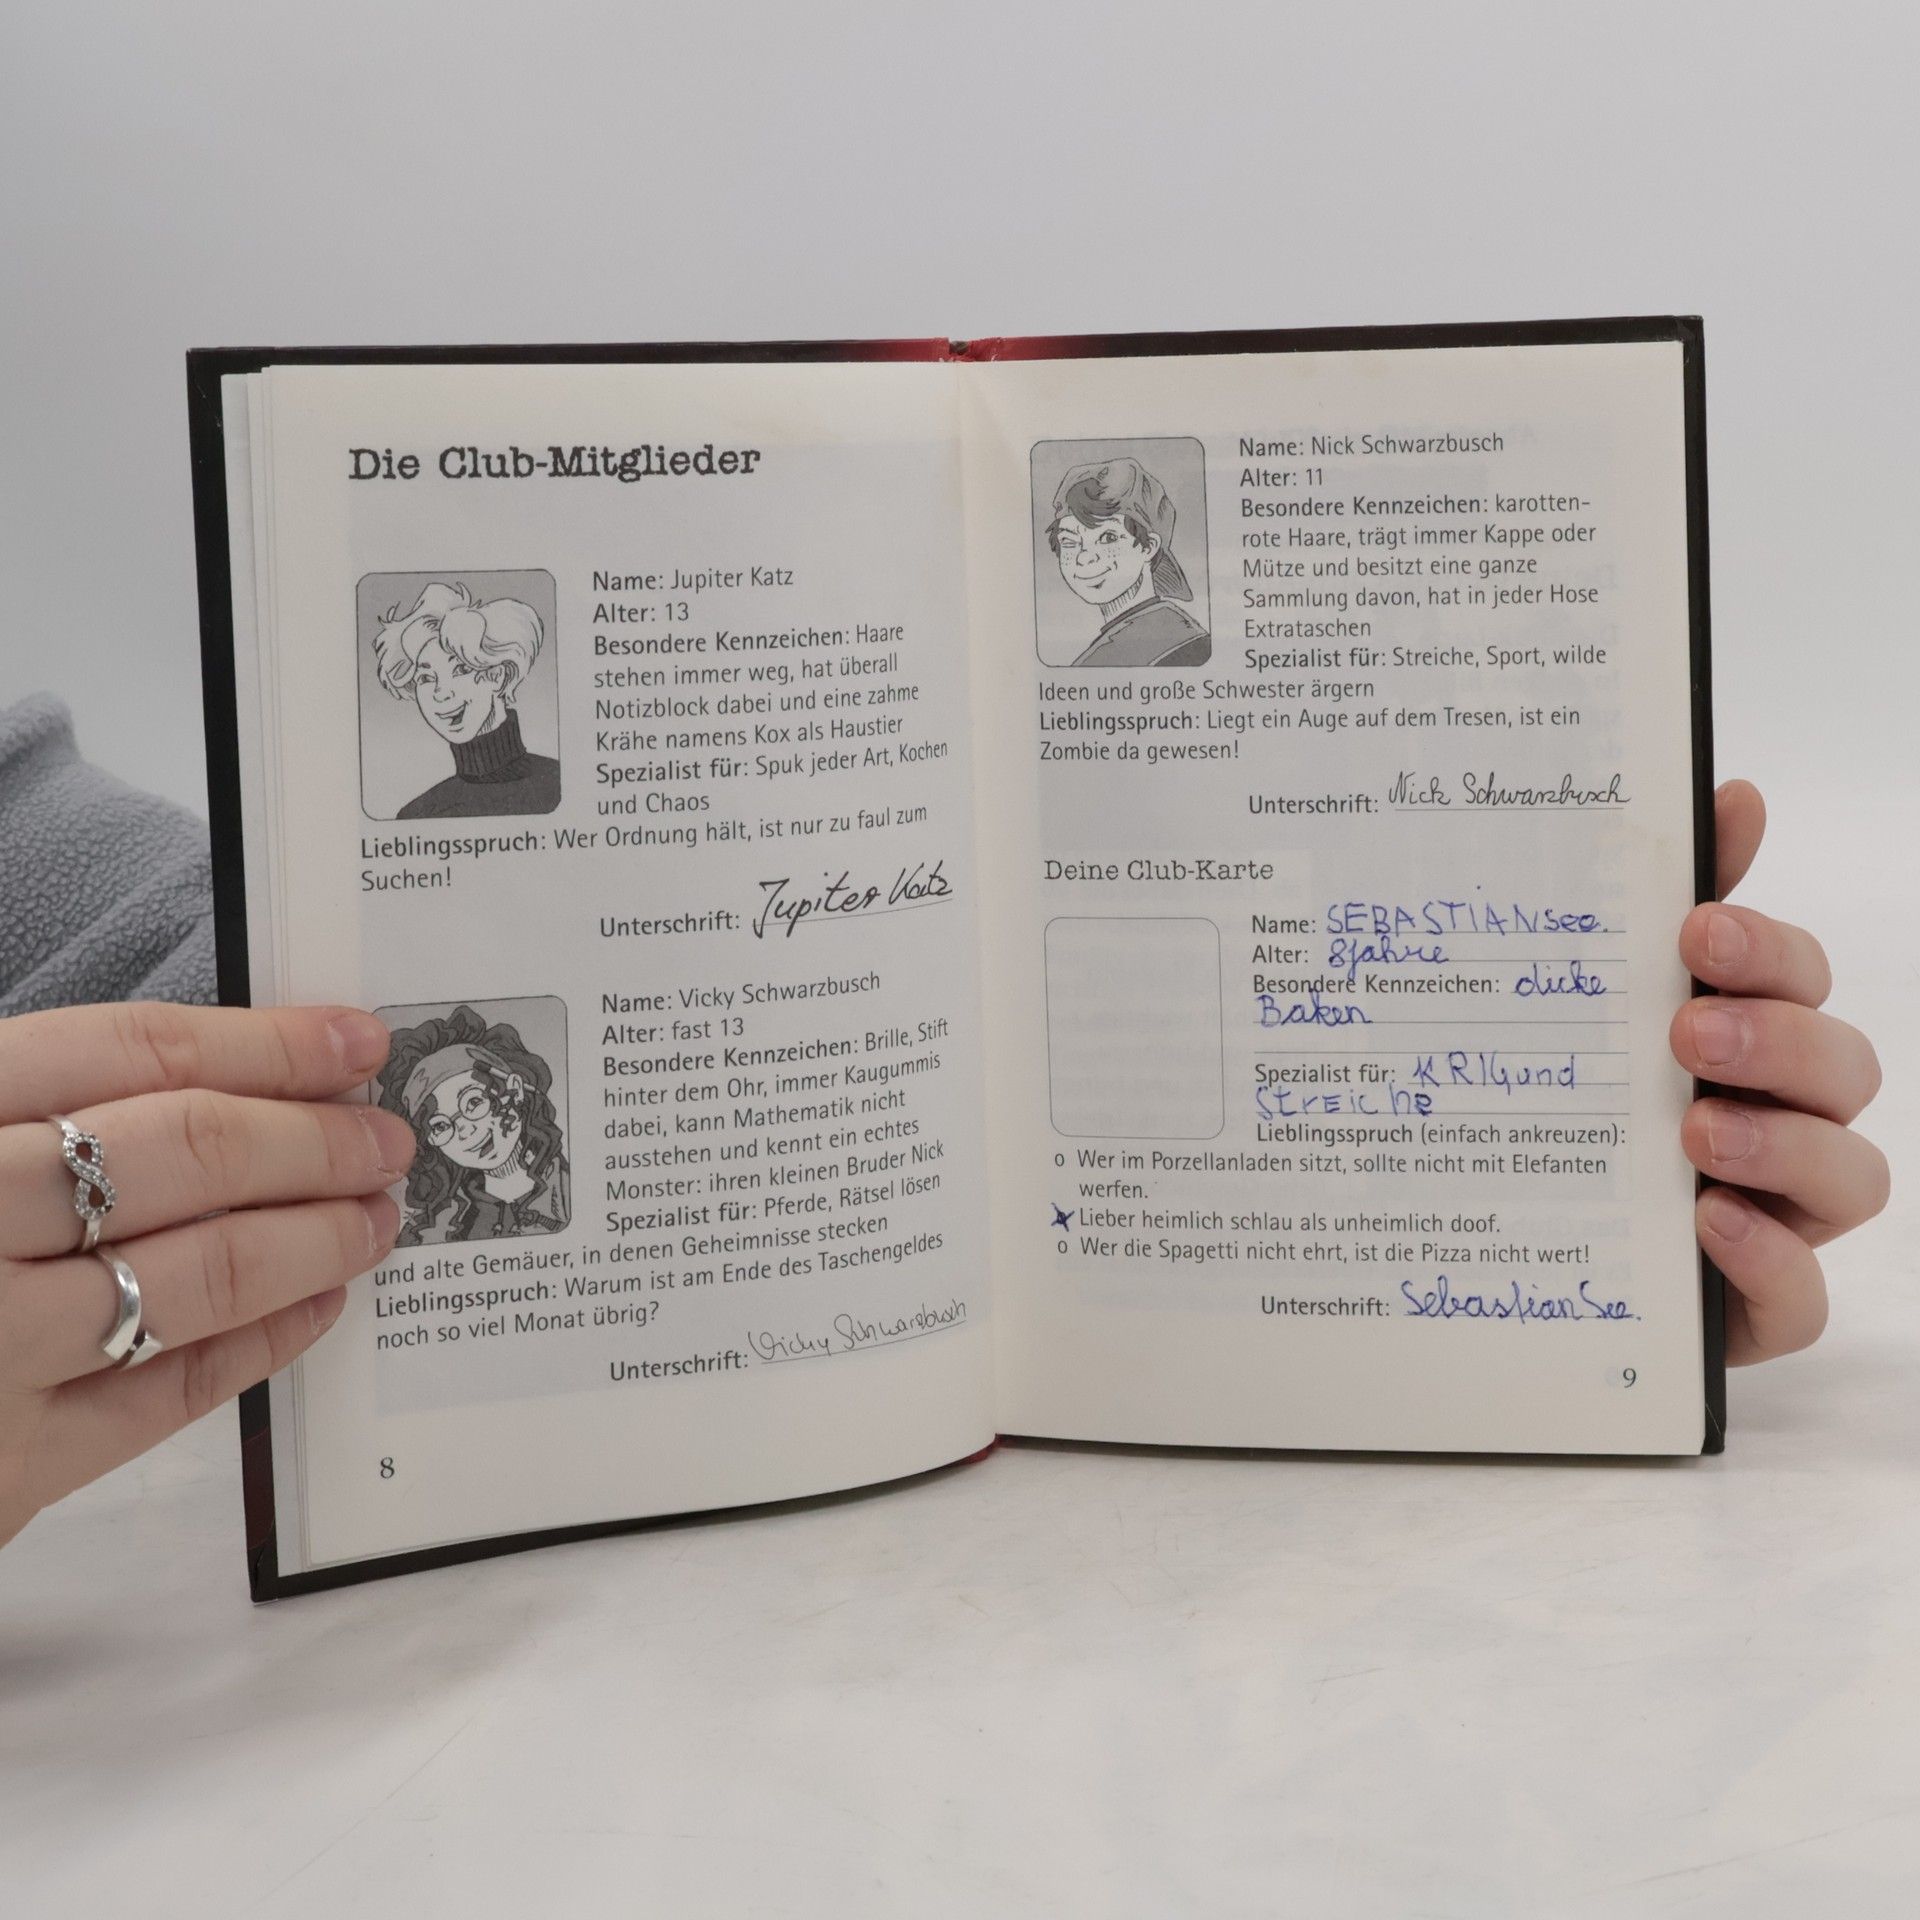 Die Club-Mitglieder
Name: Jupiter Katz
Alter: 13
Besondere Kennzeichen: Haare
stehen immer weg, hat überall
Notizblock dabei und eine zahme
Krähe namens Kox als Haustier
Spezialist für: Spuk jeder Art, Kochen
und Chaos
Lieblingsspruch: Wer Ordnung hält, ist nur zu faul zum
Suchen!
Unterschrift: Jupiter Katz
Name: Vicky Schwarzbusch
Alter: fast 13
Besondere Kennzeichen: Brille, Stift
hinter dem Ohr, immer Kaugummis
dabei, kann Mathematik nicht
ausstehen und kennt ein echtes
Monster: ihren kleinen Bruder Nick
Spezialist für: Pferde, Rätsel lösen
und alte Gemäuer, in denen Geheimnisse stecken
Lieblingsspruch: Warum ist am Ende des Taschengeldes
noch so viel Monat übrig?
Unterschrift: Vicky Schwarzbusch
8
Name: Nick Schwarzbusch
Alter: 11
Besondere Kennzeichen: karotten-
rote Haare, trägt immer Kappe oder
Mütze und besitzt eine ganze
Sammlung davon, hat in jeder Hose
Extrataschen
Spezialist für: Streiche, Sport, wilde
Ideen und große Schwester ärgern
Lieblingsspruch: Liegt ein Auge auf dem Tresen, ist ein
Zombie da gewesen!
Unterschrift: Nick Schwarzbusch
Deine Club-Karte
Name: SEBASTIAN see.
Alter: 8 jahre
Besondere Kennzeichen: dicke
Baken
Spezialist für: KRIG und
StrEiche
Lieblingsspruch (einfach ankreuzen):
o Wer im Porzellanladen sitzt, sollte nicht mit Elefanten
werfen.
x Lieber heimlich schlau als unheimlich doof.
o Wer die Spagetti nicht ehrt, ist die Pizza nicht wert!
Unterschrift: Sebastian See.
9